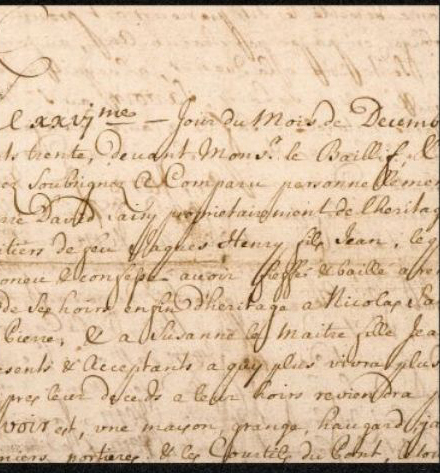 Le xxvj me – Jour du Mois de Decemb
ts trente, devant Monsr. le Baillif, &
Soubsignez A Comparu personnelleme
ne David proprietairement de l'heritag
itiers de feu Jaques Henry fils Jean, leq
oneu & confessé avoir fieffé & baillé a re
de ses hoirs enfin d'heritage a Nicolas
Pierre, & a Susanne le Maitre fille Jea
sents & Acceptants a quy plus vivra plus
pres leur deceds a leur hoirs reviendra
voir est, vne maison, grange, haugard
portieres & les Courtils du Pont,